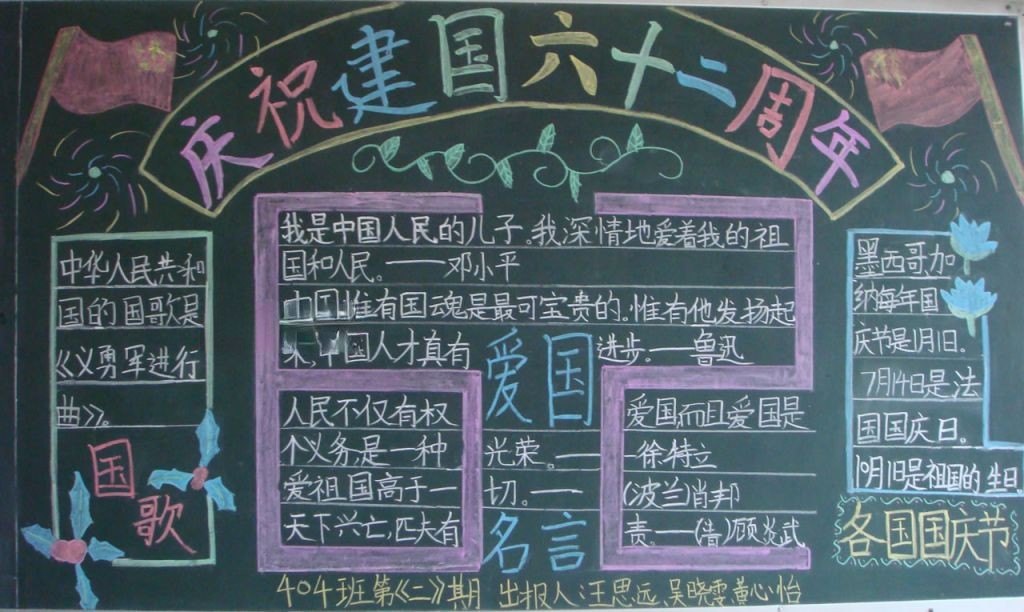 庆祝建国六十二周年
中华人民共和
国的国歌是
《义勇军进行
曲》。
国歌
我是中国人民的儿子。我深情地爱着我的祖
国和人民。——邓小平
中国,惟有国魂是最可宝贵的。惟有他发扬起
来,中国人才真有进步。——鲁迅
爱国
人民不仅有权爱国而且爱国是
个义务,是一种光荣。——徐特立
爱祖国高于一切。——(波兰)肖邦
天下兴亡,匹夫有责。——(清)顾炎武
名言
墨西哥加
纳每年国
庆节是1月1日。
7月14日是法
国国庆日。
10月1日是祖国的生日
各国国庆节
404班第《二》期 出报人:汪思远,吴晓雯黄心怡